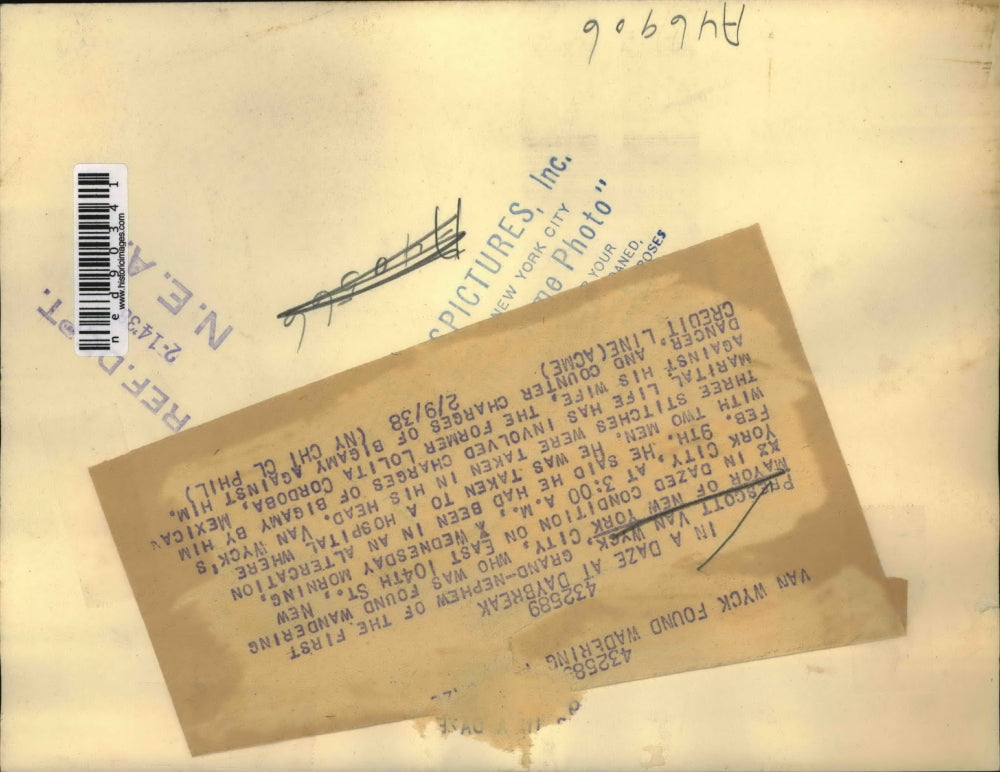 A46906
Inc.
NEW YORK CITY
YOUR
REF. DEPT.
N. E. A.
ned90341
www.historicimages.com
IN A DAZE
432589
VAN WYCK FOUND WADERING
432589
IN A DAZE AT DAYBREAK
PRESCOTT VAN WYCK, GRAND-NEPHEW OF THE FIRST
MAYOR OF NEW YORK CITY, WHO WAS FOUND WANDERING
XX IN DAZED CONDITION ON EAST 104TH ST., NEW
YORK CITY, AT 3:00 A. M. WEDNESDAY MORNING,
FEB. 9TH. HE SAID HE HAD BEEN IN AN ALTERCATION
WITH TWO MEN. HE WAS TAKEN TO A HOSPITAL WHERE
THREE STITCHES WERE TAKEN IN HIS HEAD. VAN WYCK'S
MARITAL LIFE HAS INVOLVED CHARGES OF BIGAMY BY HIM
AGAINST HIS WIFE, THE FORMER LOLITA CORDOBA, MEXICAN
DANCER, AND COUNTER CHARGES OF BIGAMY AGAINST HIM.
CREDIT LINE (ACME) 2/9/38 (NY CHI CL PHIL)